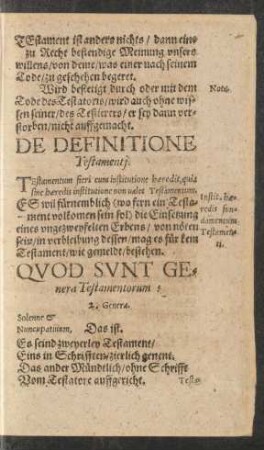 TEstament ist anders nichts / dann ein
zu Recht bestendige Meinung vnsers
willens / von deme / was einer nach seinem
Tode / zu geschehen begeret.
Wird bestetigt durch oder mit dem
Nota.
Tode des Testatoris / wird auch ohne wis-
sen seiner / des Testirers / er sey dann ver-
storben / nicht auffgemacht.
DE DEFINITIONE
Testamenti.
TEstamentum fieri cum institutione hæredit, quia
sine hæredis institutione non valet Testamentum.
ES wil fürnemblich (wo fern ein Testa-
ment volkomen sein sol) die Einsetzung
eines vngezweyfelten Erbens / von nöten
sein / in verbleibung dessen / mag es für kein
Testament / wie gemeldt / bestehen.
Instit. hæ-
redis fun-
damentum
Testamen-
ti.
QVOD SVNT GE-
nera Testamentorum ?
2. Genera.
Solenne &
Nuncupatiuum. Das ist.
Es seind zweyerley Testament /
Eins in Schrifften / zierlich genent.
Das ander Mündtlich / ohne Schrifft
Vom Testatore auffgericht.